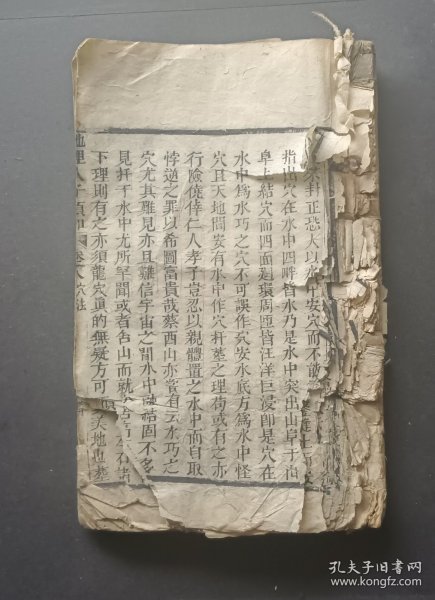 封正恐人以水中安穴而不敢
指出穴在水中四畔皆水乃是水中突出山阜于山
阜上結穴而四面迴環周匝皆汪洋巨浸卽是穴在
水中爲水巧之穴不可誤作穴安水底方爲水中怪
穴且天地間安有水中作穴扦墓之理荷或有之亦
行險僥倖仁人孝子豈忍以親體置之水中而自取
悖逆之罪以希圖富貴哉蔡西山亦嘗有云水巧之
穴尤其難見亦且難信宇宙之間水中融結固不多
見扦于水中尤所罕聞或者舍山而就
下理則有之亦須龍穴真的無疑方可
天地也
地理人子須知
卷八穴法
孔夫子旧书网
www.kongfz.com